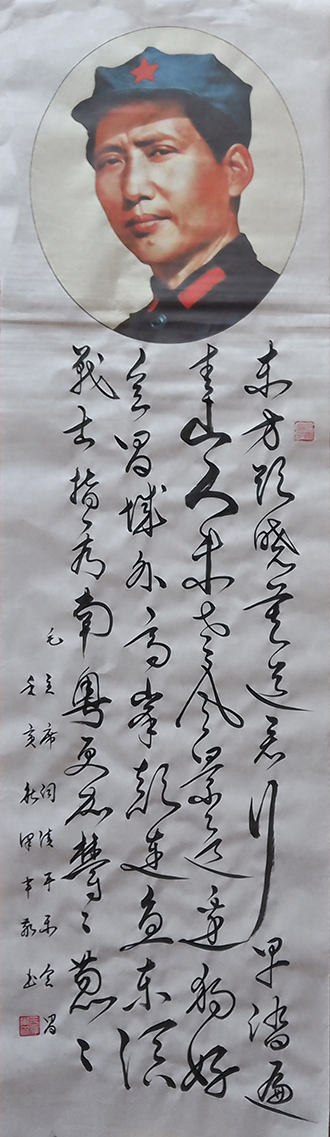 东方欲晓莫道君行早踏遍
青山人未老风景这边独好
会昌城外高峰颠连直东溟
战士指看南粤更加郁々葱々
毛主席词清平乐会昌